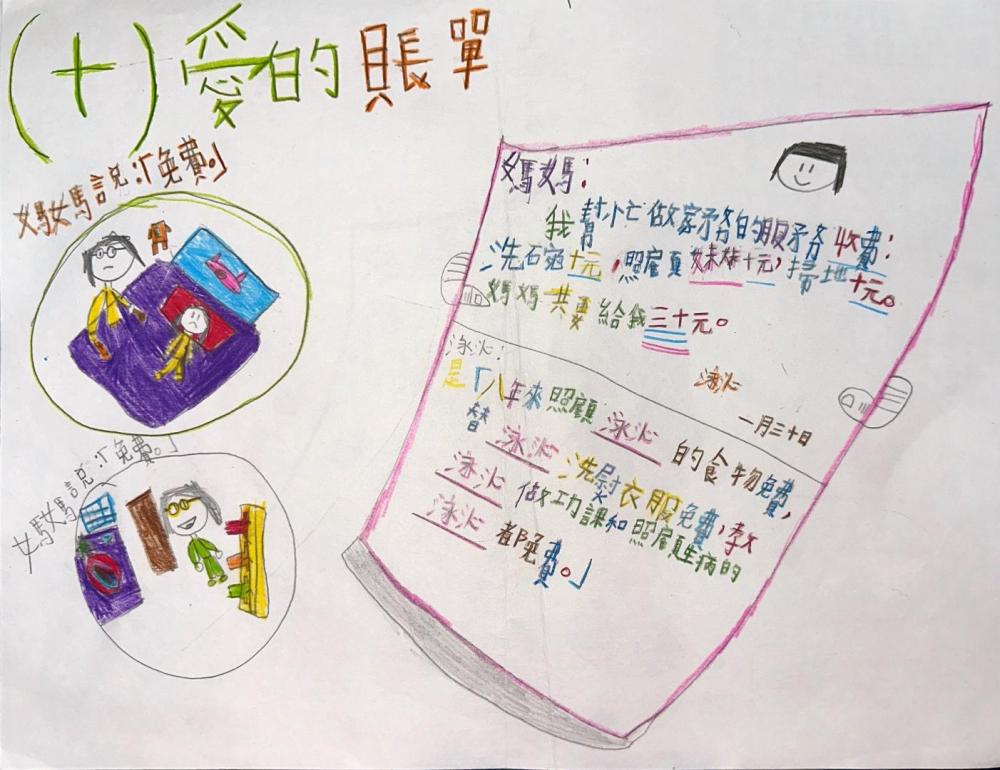 (十)愛的賬單
媽媽說:「免費。」
媽媽說:「免費。」
媽媽:
我幫忙做家務的服務收費:
洗碗十元,照顧妹妹十元,掃地十元。
媽媽共要給我三十元。
泳沁
一月三十日
泳沁:
是「八年來照顧泳沁的食物免費,
替泳沁洗熨衣服免費,教
泳沁做功課和照顧生病的
泳沁都免費。」